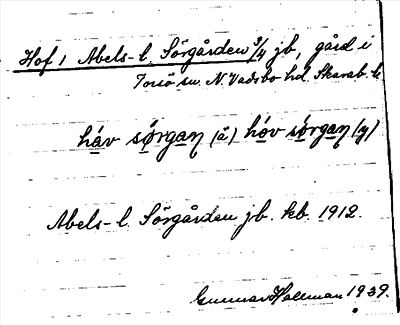 Hof, Abels- l. Sörgården 3/4 jb, gård i
Torsö sn N. Vadsbo hd. Skarab. l.
håv sörgaṇ (ä) hóv sörgaṇ (y)
Abels- l. Sörgården jb. kb. 1912.
Gunnar Hallman 1939.